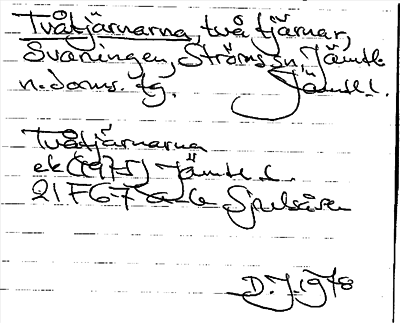 Tvåtjärnarna, två tjärnar,
Svaningen, Ströms sn, Jämtl.
n. doms. tg. Jämtl. l.
Tvåtjärnarna
ek (1975) Jämtl. l.
21 F 6-7 a-b Sjulsåsen
D. J. 1978